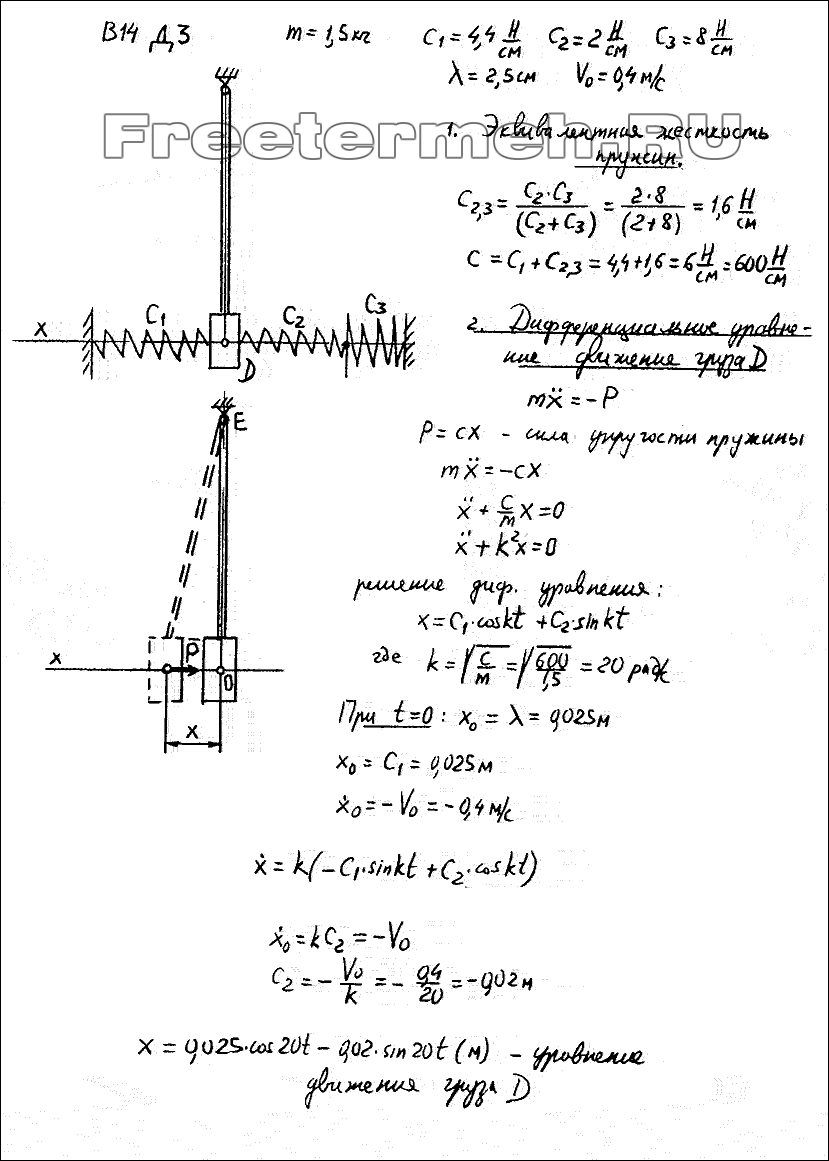 В14 Д3 m = 1,5 кг C1 = 4,4 Н/см C2 = 2 Н/см C3 = 8 Н/см
λ = 2,5 см V0 = 0,4 м/с
Freetermeh.RU
1. Эквивалентная жесткость
пружин.
C2,3 = C2·C3/(C2+C3) = 2·8/(2+8) = 1,6 Н/см
C = C1 + C2,3 = 4,4+1,6 = 6 Н/см = 600 Н/см
C1 C2 C3
X
D
2. Дифференциальное уравне-
ние движения груза D
mẍ = -P
E
P = cx - сила упругости пружины
mẍ = -cx
ẍ + c/m x = 0
ẍ + k²x = 0
решение диф. уравнения:
x = C1·coskt + C2·sinkt
где k = √(c/m) = √(600/1,5) = 20 рад/с
X P̄ O
X
При t=0: x0 = λ = 0,025 м
x0 = C1 = 0,025 м
ẋ0 = -V0 = -0,4 м/с
ẋ = k(-C1·sinkt + C2·coskt)
ẋ0 = kC2 = -V0
C2 = - V0/k = - 0,4/20 = -0,02 м
x = 0,025·cos20t - 0,02·sin20t (м) - уравнение
движения груза D